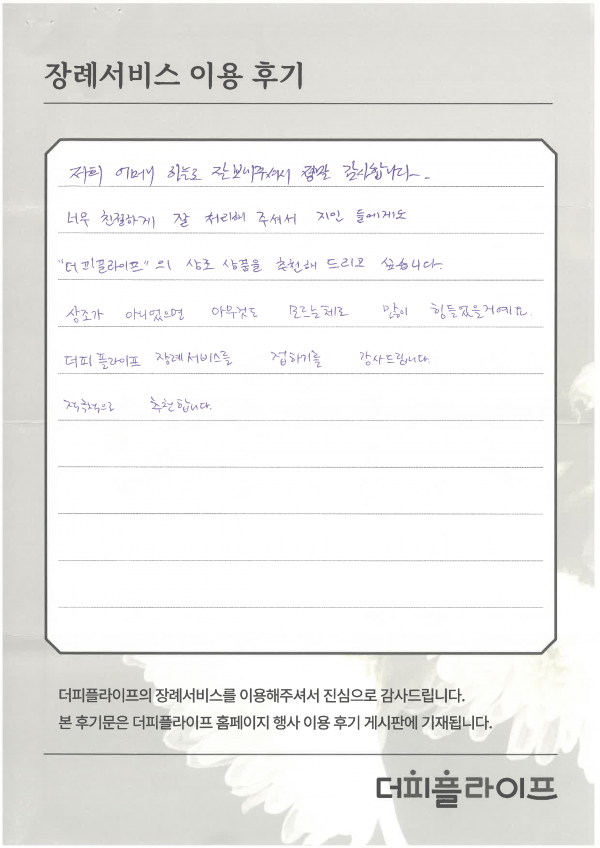 장례서비스 이용 후기
저희 어머니 하늘로 잘 보내주셔서 정말 감사합니다~
너무 친절하게 잘 처리해 주셔서 지인 들에게도
"더피플라이프"의 상조 상품을 추천해 드리고 싶습니다.
상조가 아니었으면 아무것도 모르는체로 많이 힘들었을거예요.
더피플라이프 장례서비스를 접하기를 감사드립니다.
적극적으로 추천합니다.
더피플라이프의 장례서비스를 이용해주셔서 진심으로 감사드립니다.
본 후기문은 더피플라이프 홈페이지 행사 이용 후기 게시판에 기재됩니다.
더피플라이프